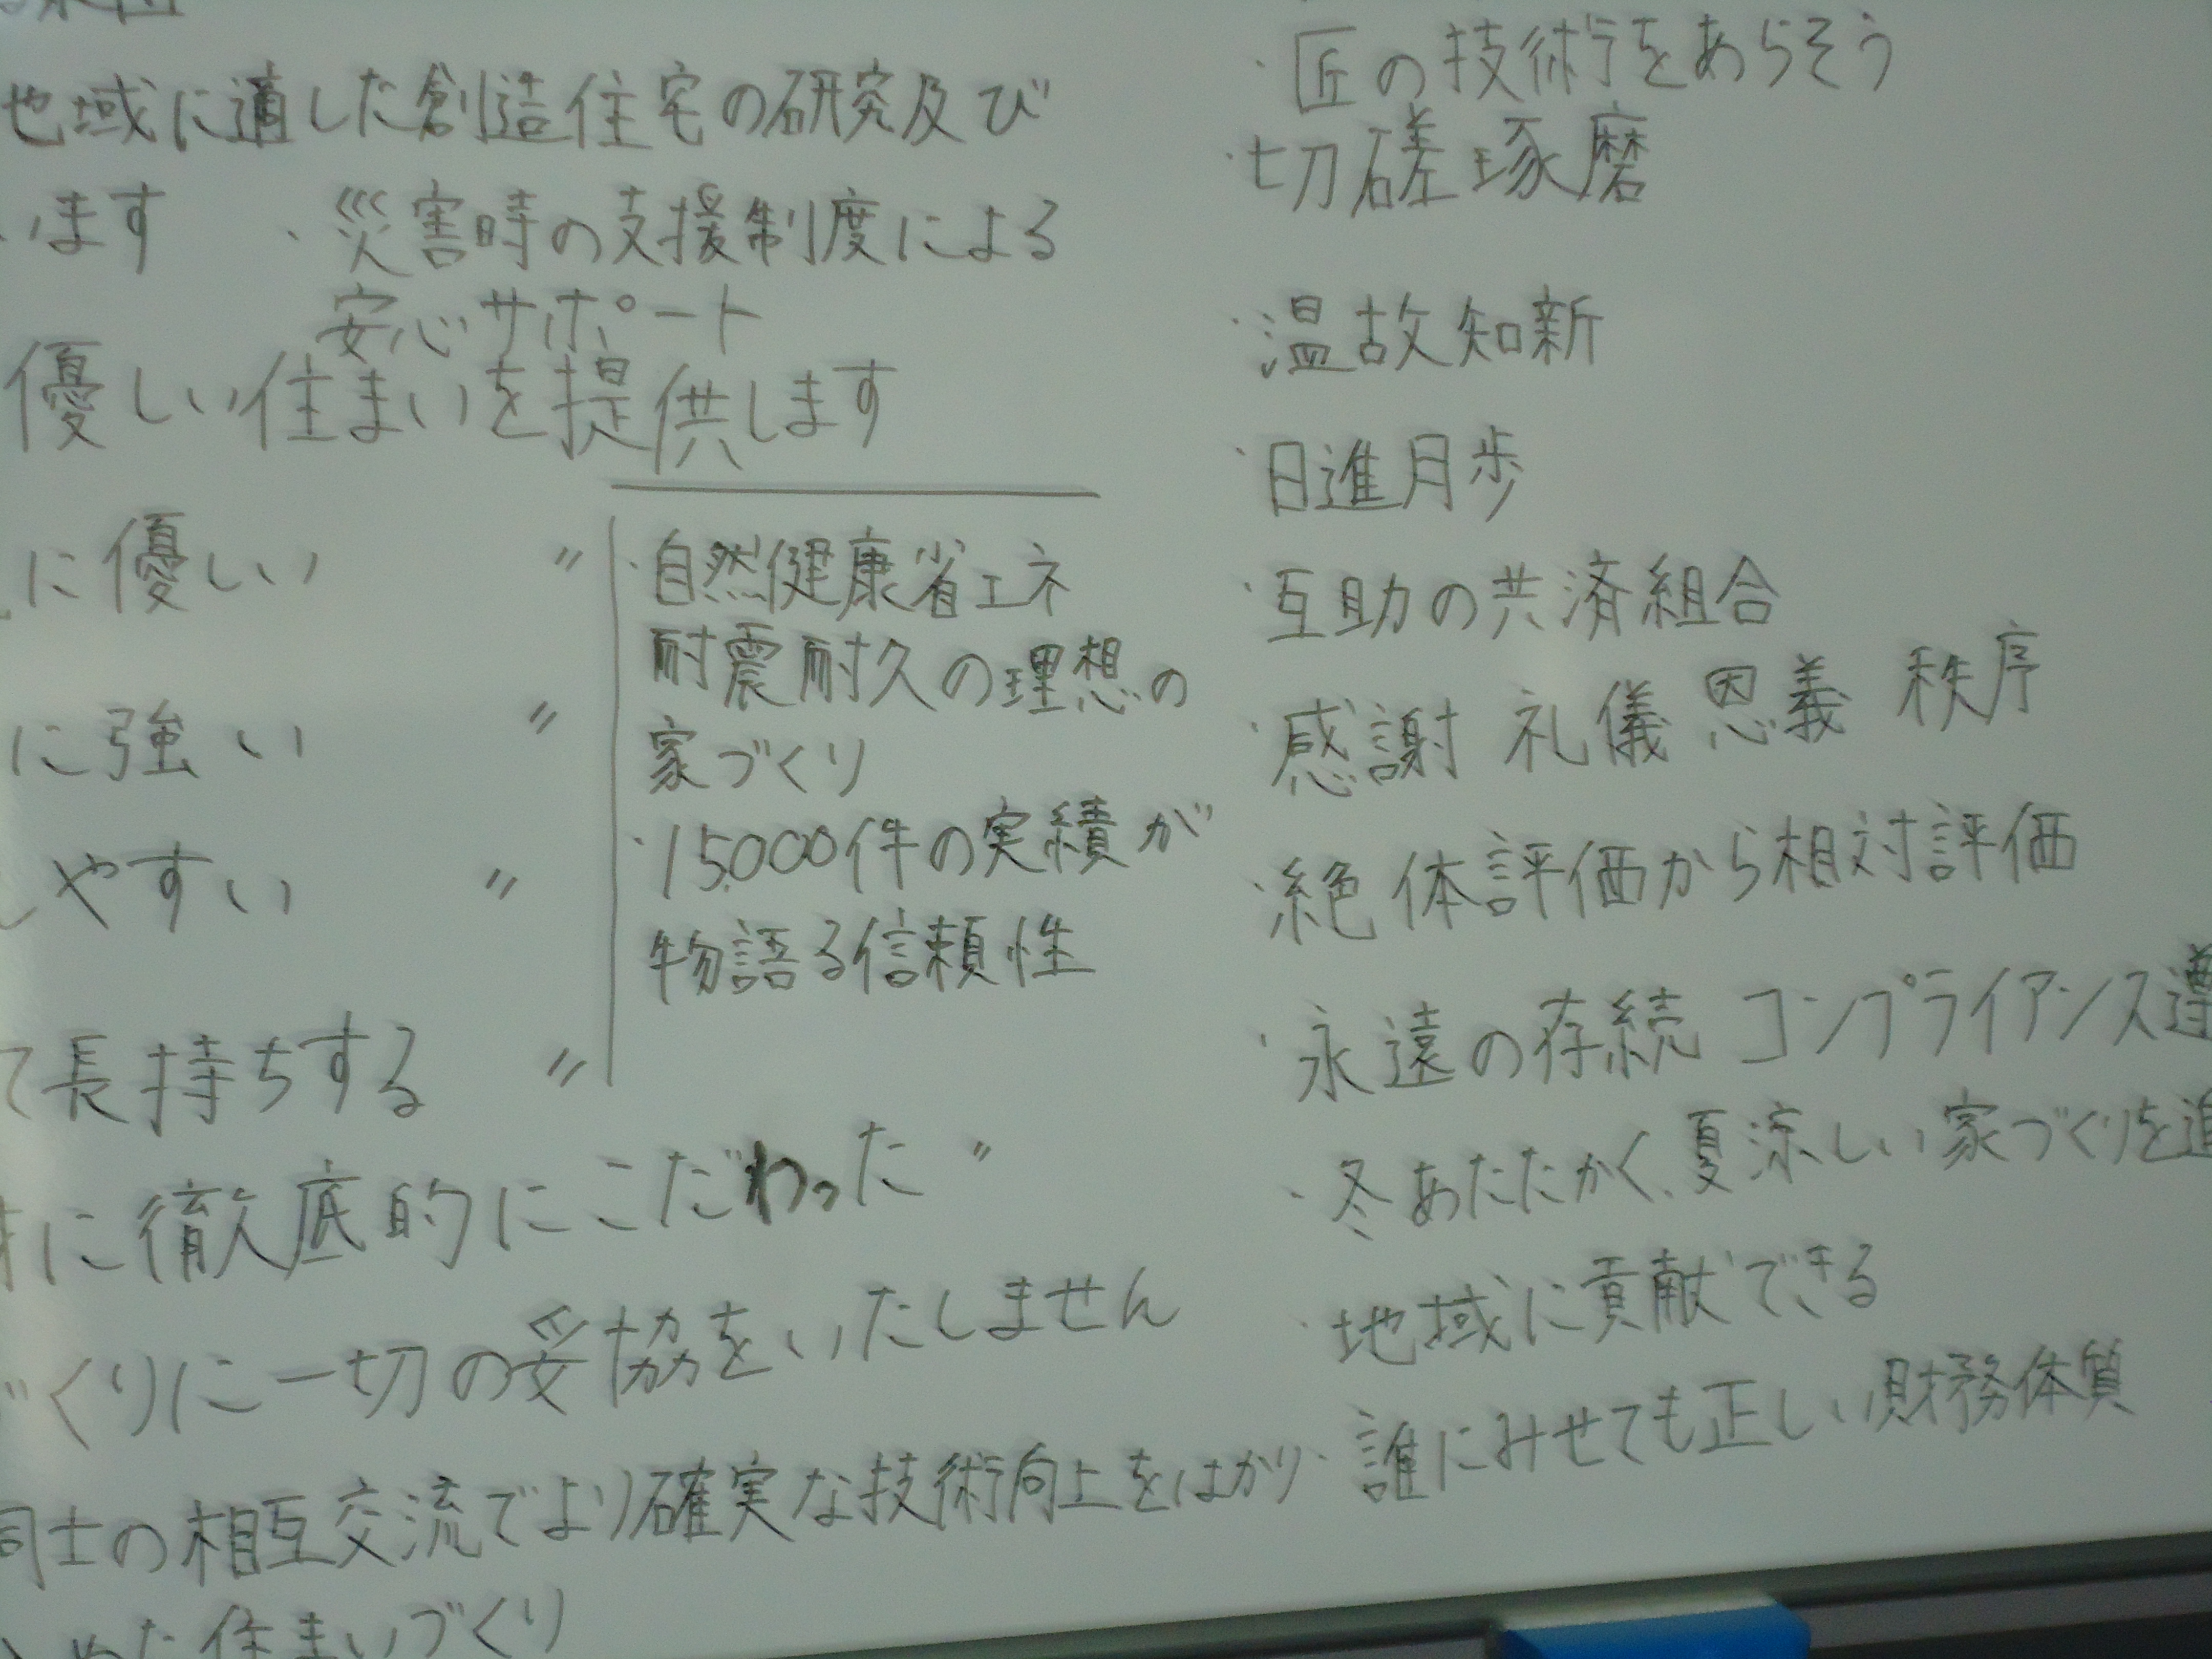 地域に適した創造住宅の研究及び
います
・災害時の支援制度による
安心サポート
優しい住まいを提供します
に優しい 〃
に強い 〃
しやすい 〃
て長持ちする 〃
・自然健康省エネ
耐震耐久の理想の
家づくり
・15,000件の実績が
物語る信頼性
に徹底的にこだわった 〃
づくりに一切の妥協をいたしません
同士の相互交流でより確実な技術向上をはかり
た住まいづくり
・匠の技術をあらそう
・切磋琢磨
・温故知新
・日進月歩
・互助の共済組合
・感謝 礼儀 恩義 秩序
・絶体評価から相対評価
・永遠の存続 コンプライアンス遵
・冬あたたかく、夏涼しい家づくりを追
・地域に貢献できる
・誰にみせても正しい財務体質